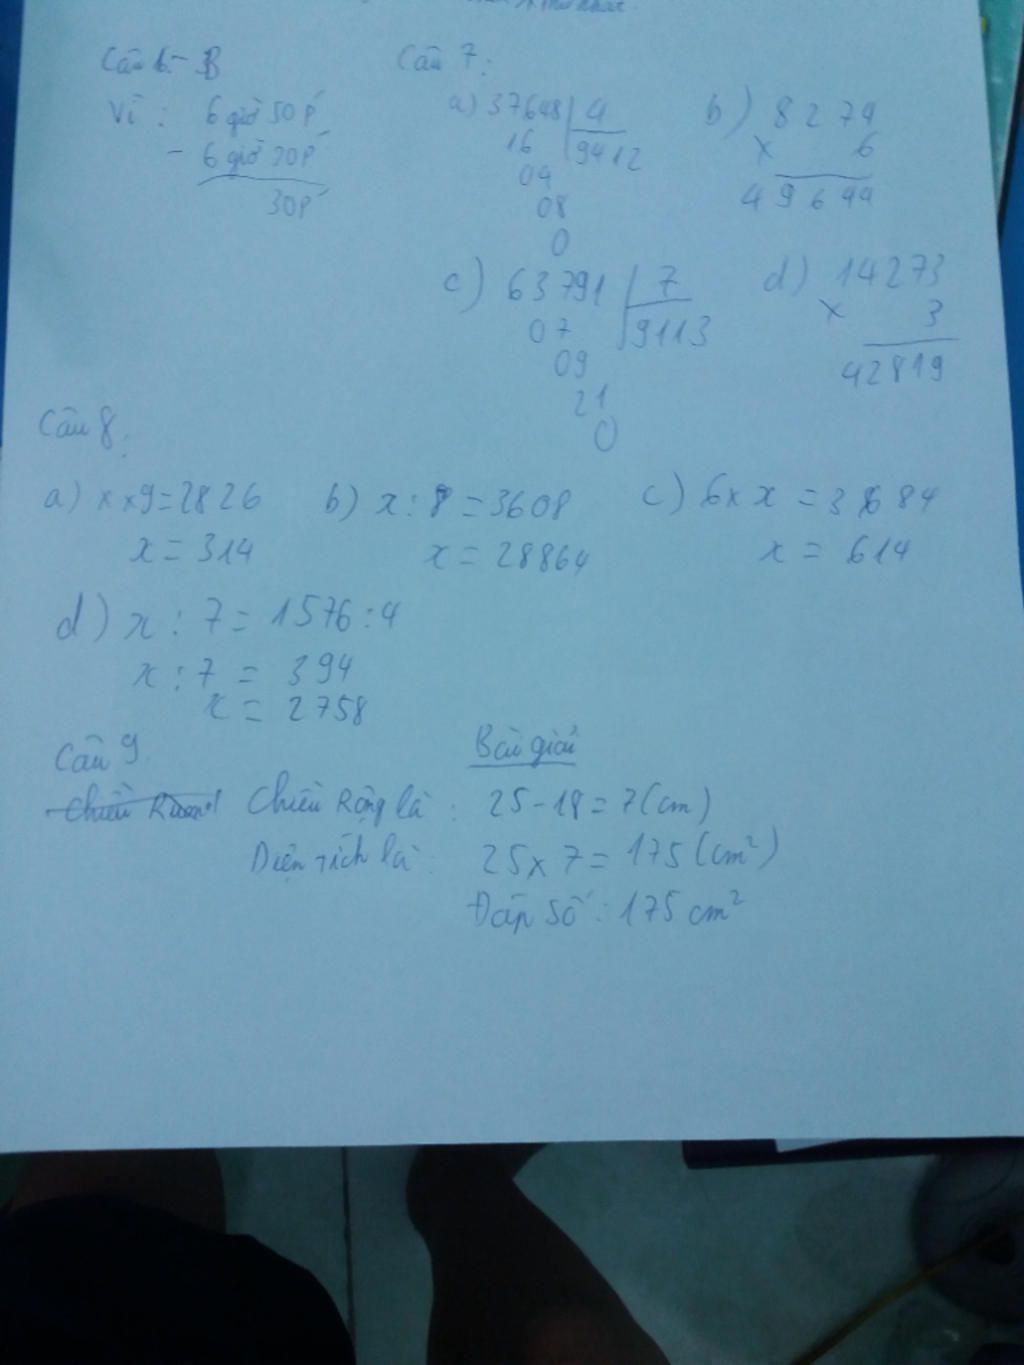 Câu 6: B
Câu 7:
Vì: 6 giờ 50P
- 6 giờ 20P
30P
a) 37648 | 4
16 | 9412
04
08
0
b) 8274
x 6
49644
c) 63791 | 7
07 | 9113
09
21
0
d) 14273
x 3
42819
Câu 8:
a) x x 9 = 2826
x = 314
b) x : 8 = 3608
x = 28864
c) 6 x x = 3684
x = 614
d) x : 7 = 1576 : 4
x : 7 = 394
x = 2758
Câu 9
Bài giải
Chiều Rộng là: 25 - 18 = 7 (cm)
Diện Tích là: 25 x 7 = 175 (cm²)
Đáp số: 175 cm²